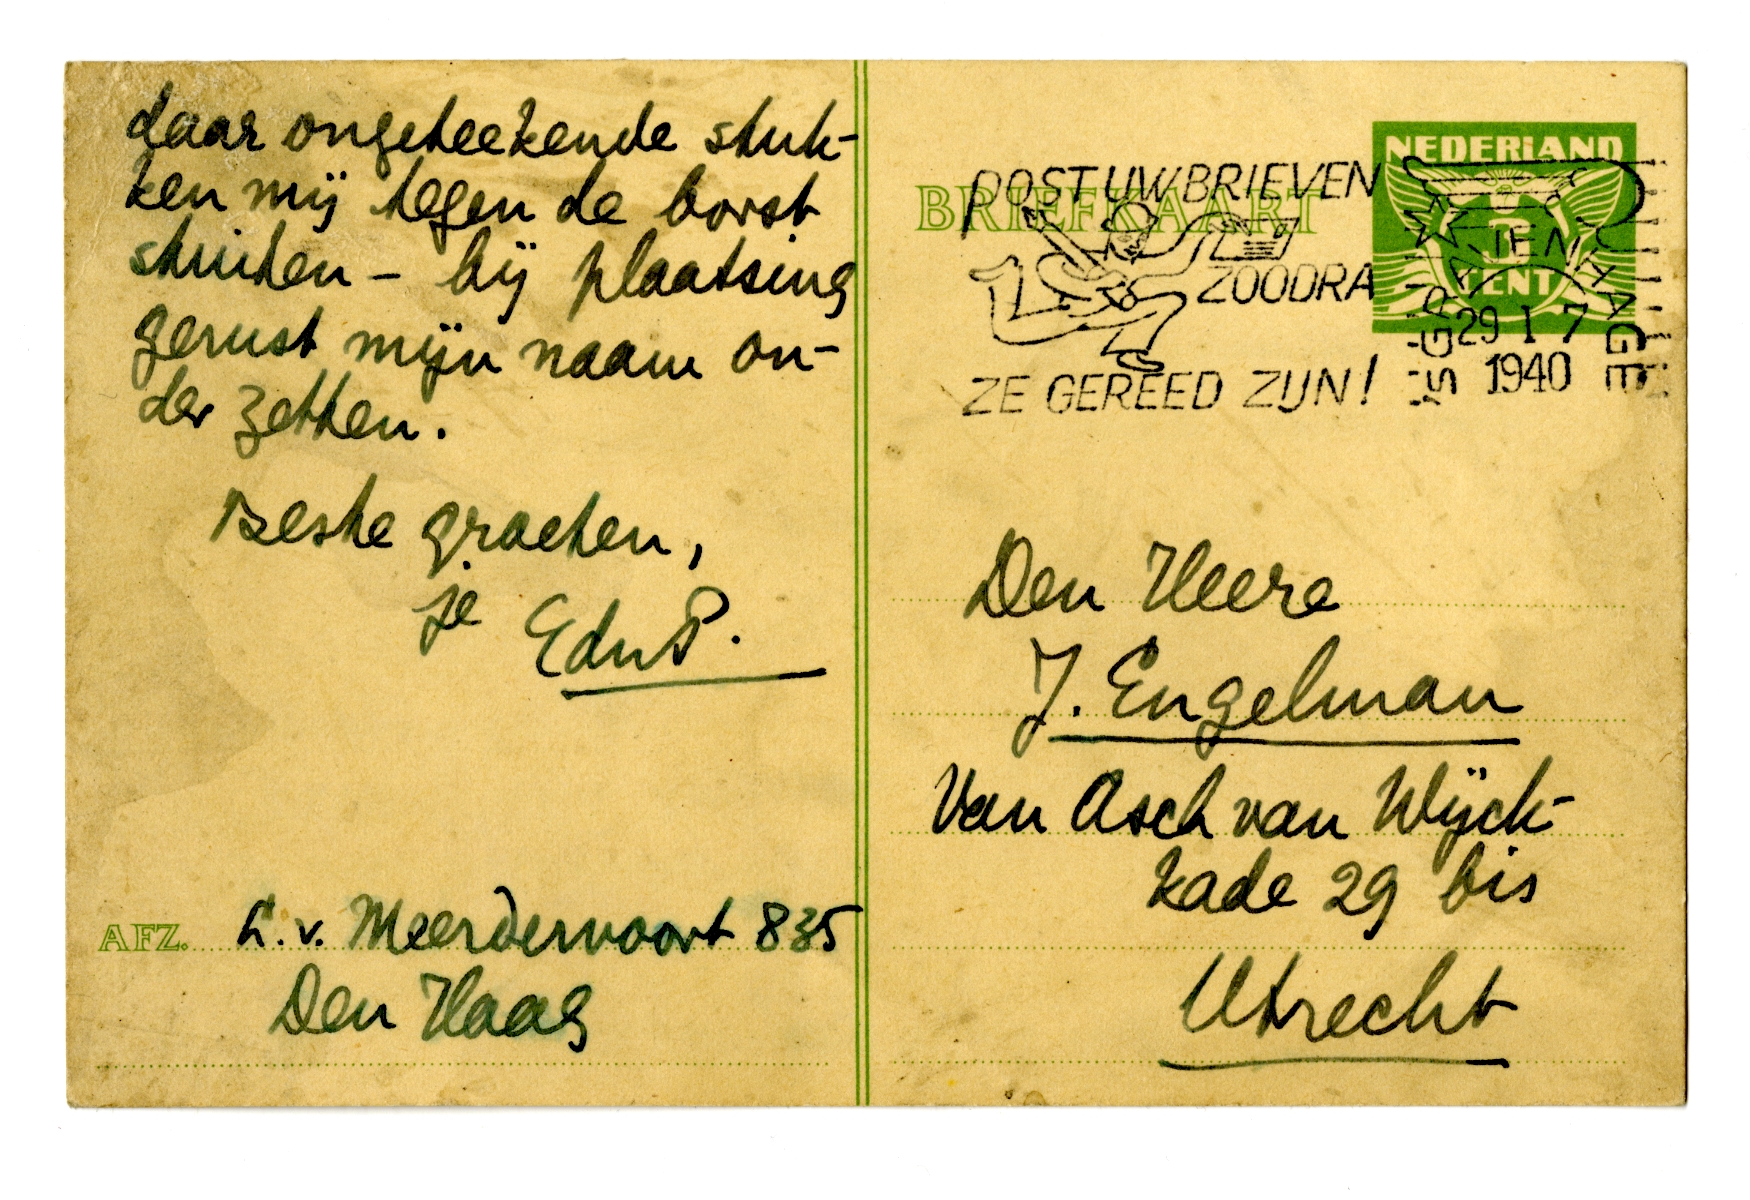 daar ongeteekende stuk-
ken mij tegen de borst
stuiten – bij plaatsing
gerust mijn naam on-
der zetten.
Beste groeten,
je EduP.
AFZ. L. v. Meerdervoort 835
Den Haag
BRIEFKAART
POST UW BRIEVEN
ZOODRA
ZE GEREED ZIJN!
NEDERLAND
CENT
'S GRAVENHAGE
29 I 7
1940
Den Heere
J. Engelman
Van Asch van Wijck-
kade 29 bis
Utrecht